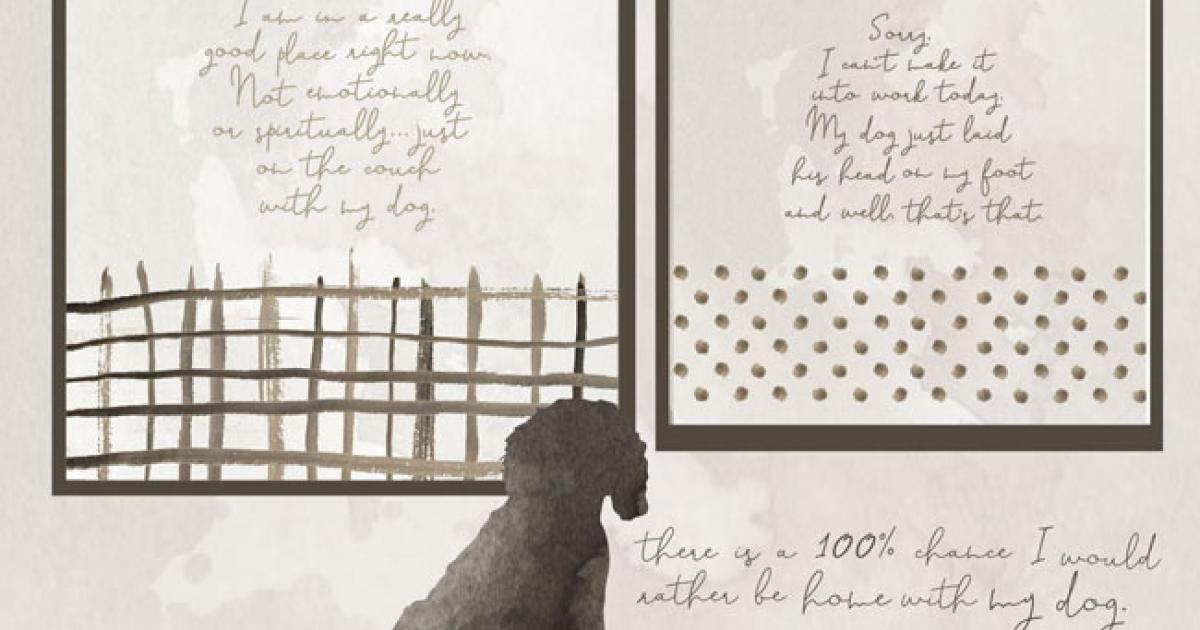 I am in a really
good place right now.
Not emotionally
or spiritually... just
on the couch
with my dog.
Sorry,
I can't make it
into work today.
My dog just laid
his head on my foot
and well, that's that.
there is a 100% chance I would
rather be home with my dog.